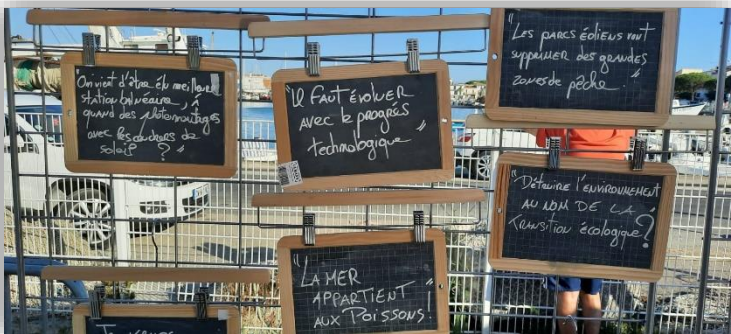 "On vient d'être élu meilleure
station balnéaire, À
quand des photomontages
avec les couchers de
soleil ? "
"Il faut évoluer
avec le progrès
technologique "
"Les parcs éoliens vont
supprimer des grandes
zones de pêche. "
"Détruire l'environnement
au nom de la
Transition écologique ? "
"La mer
appartient
aux Poissons ! "